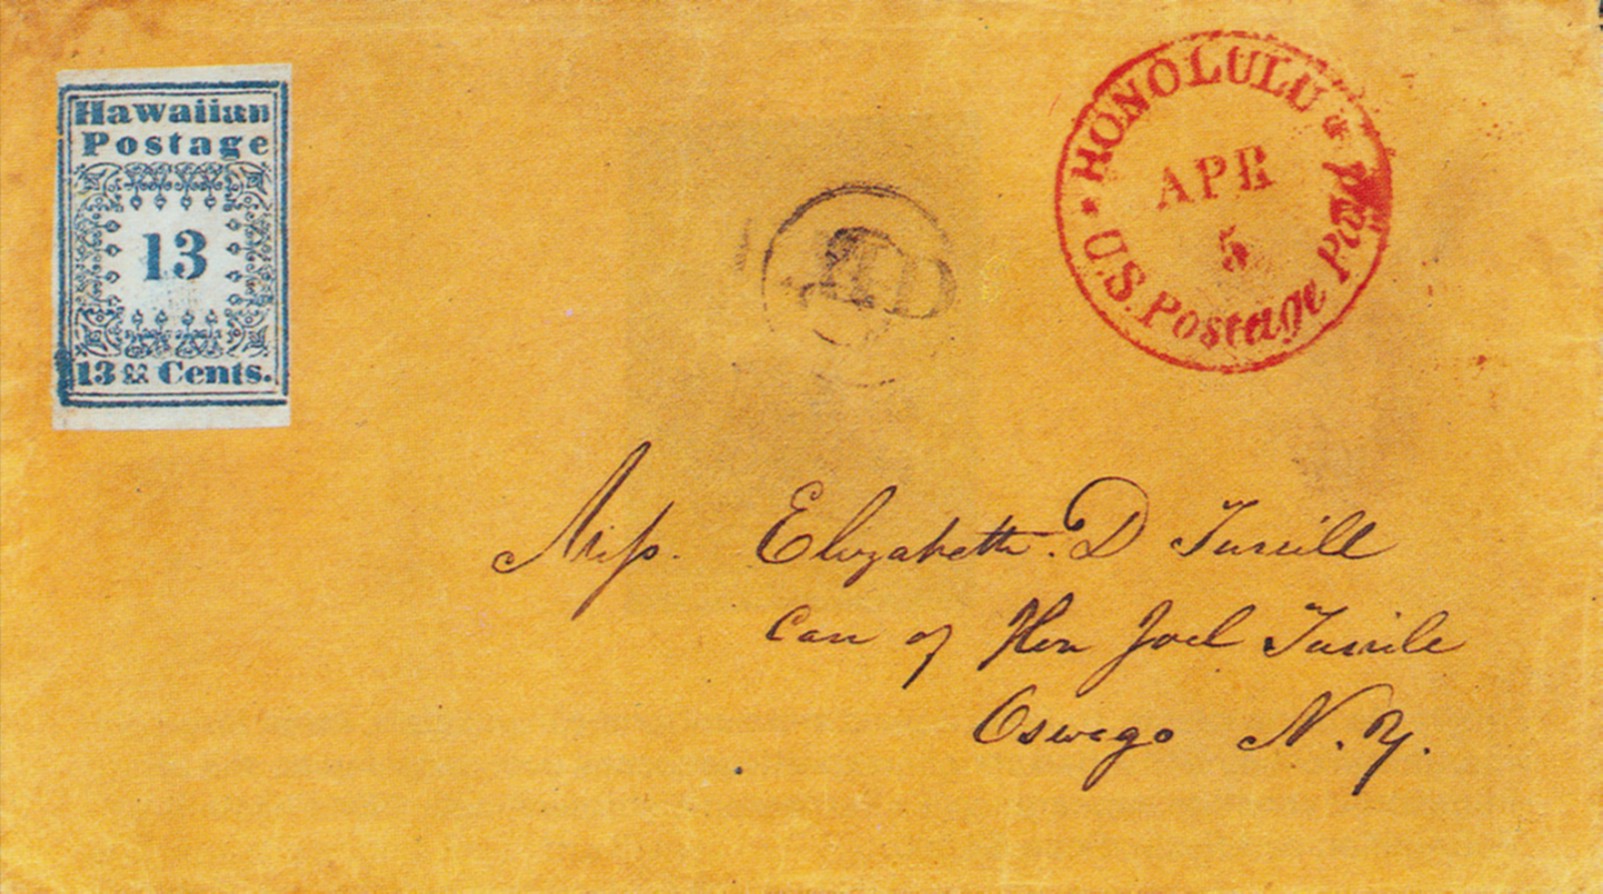 Hawaiian
Postage
13
13 Cents.
HONOLULU * U.S. Postage Paid *
APR
5
Miss. Elizabeth. D Turrill
Care of Hon Joel Turrile
Oswego N.Y.